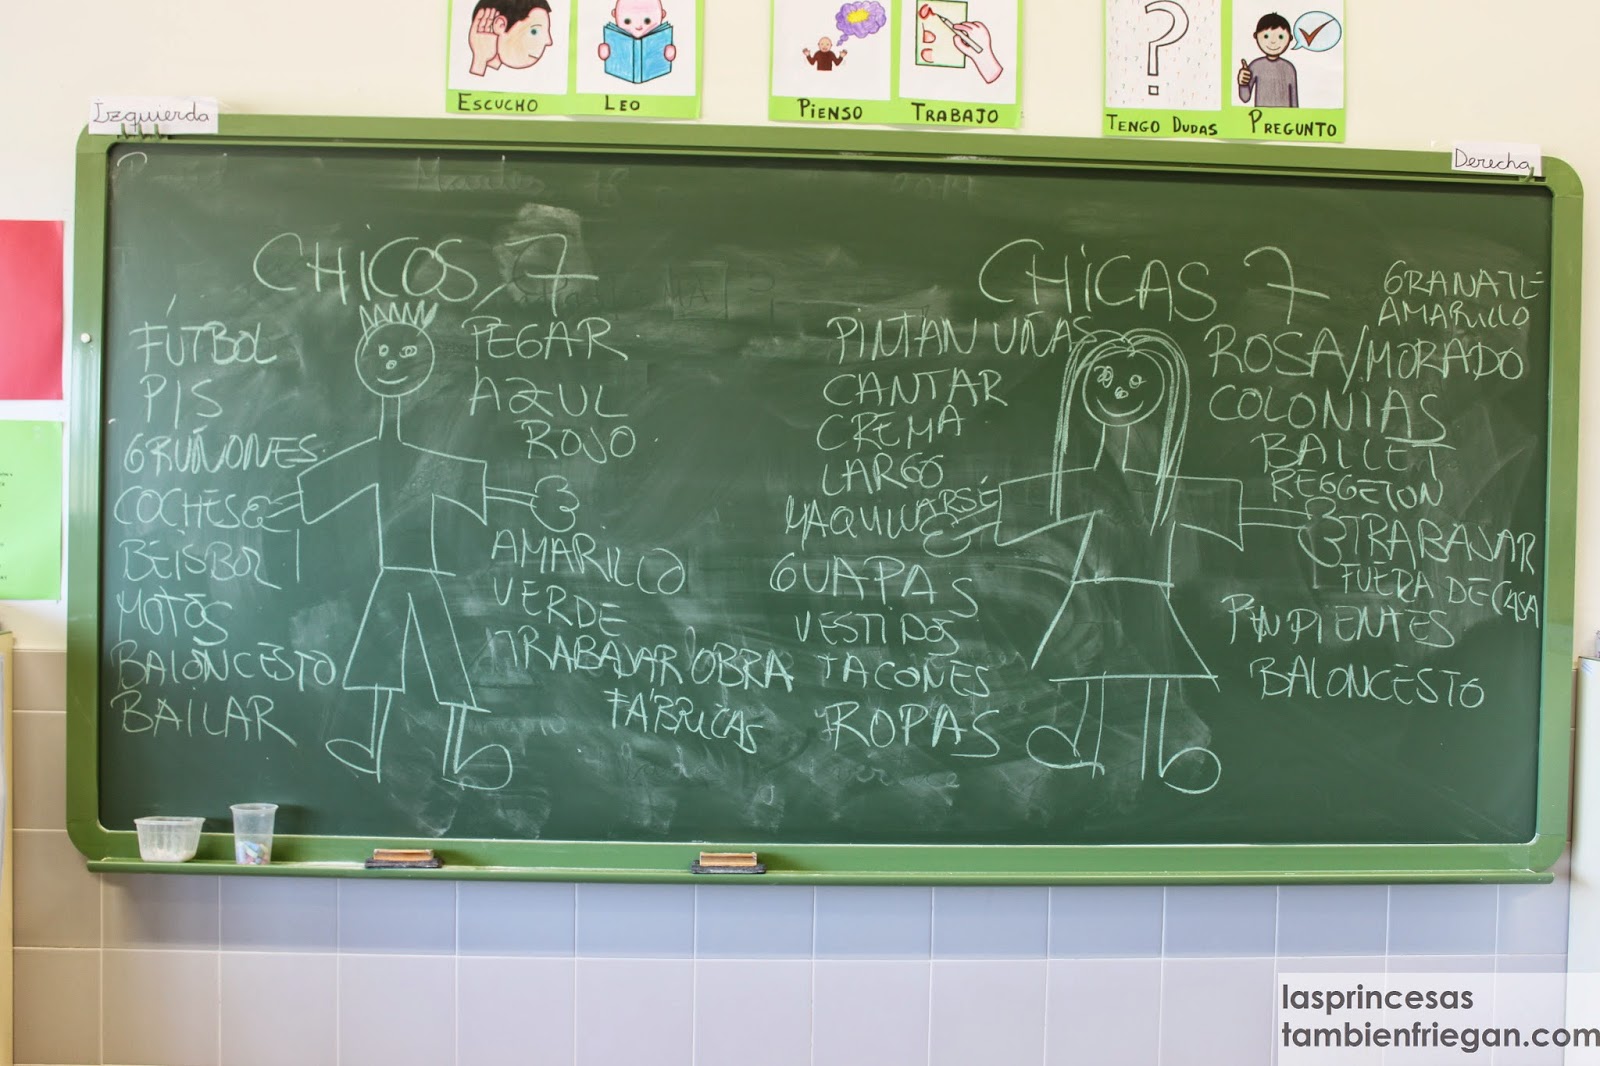 ESCUCHO
LEO
PIENSO
TRABAJO
TENGO DUDAS
PREGUNTO
Izquierda
Derecha
CHICOS 7
FÚTBOL
PIS
GRUÑONES
COCHES
BÉISBOL
MOTOS
BALONCESTO
BAILAR
PEGAR
AZUL
ROJO
AMARILLO
VERDE
TRABAJAR OBRA
FÁBRICAS
CHICAS 7
PINTAN UÑAS
CANTAR
CREMA
LARGO
MAQUILLARSE
GUAPAS
VESTIDOS
TACONES
ROPAS
GRANATE
AMARILLO
ROSA/MORADO
COLONIAS
BALLET
REGGETON
TRABAJAR
FUERA DE CASA
PENDIENTES
BALONCESTO
lasprincesas
tambienfriegan.com